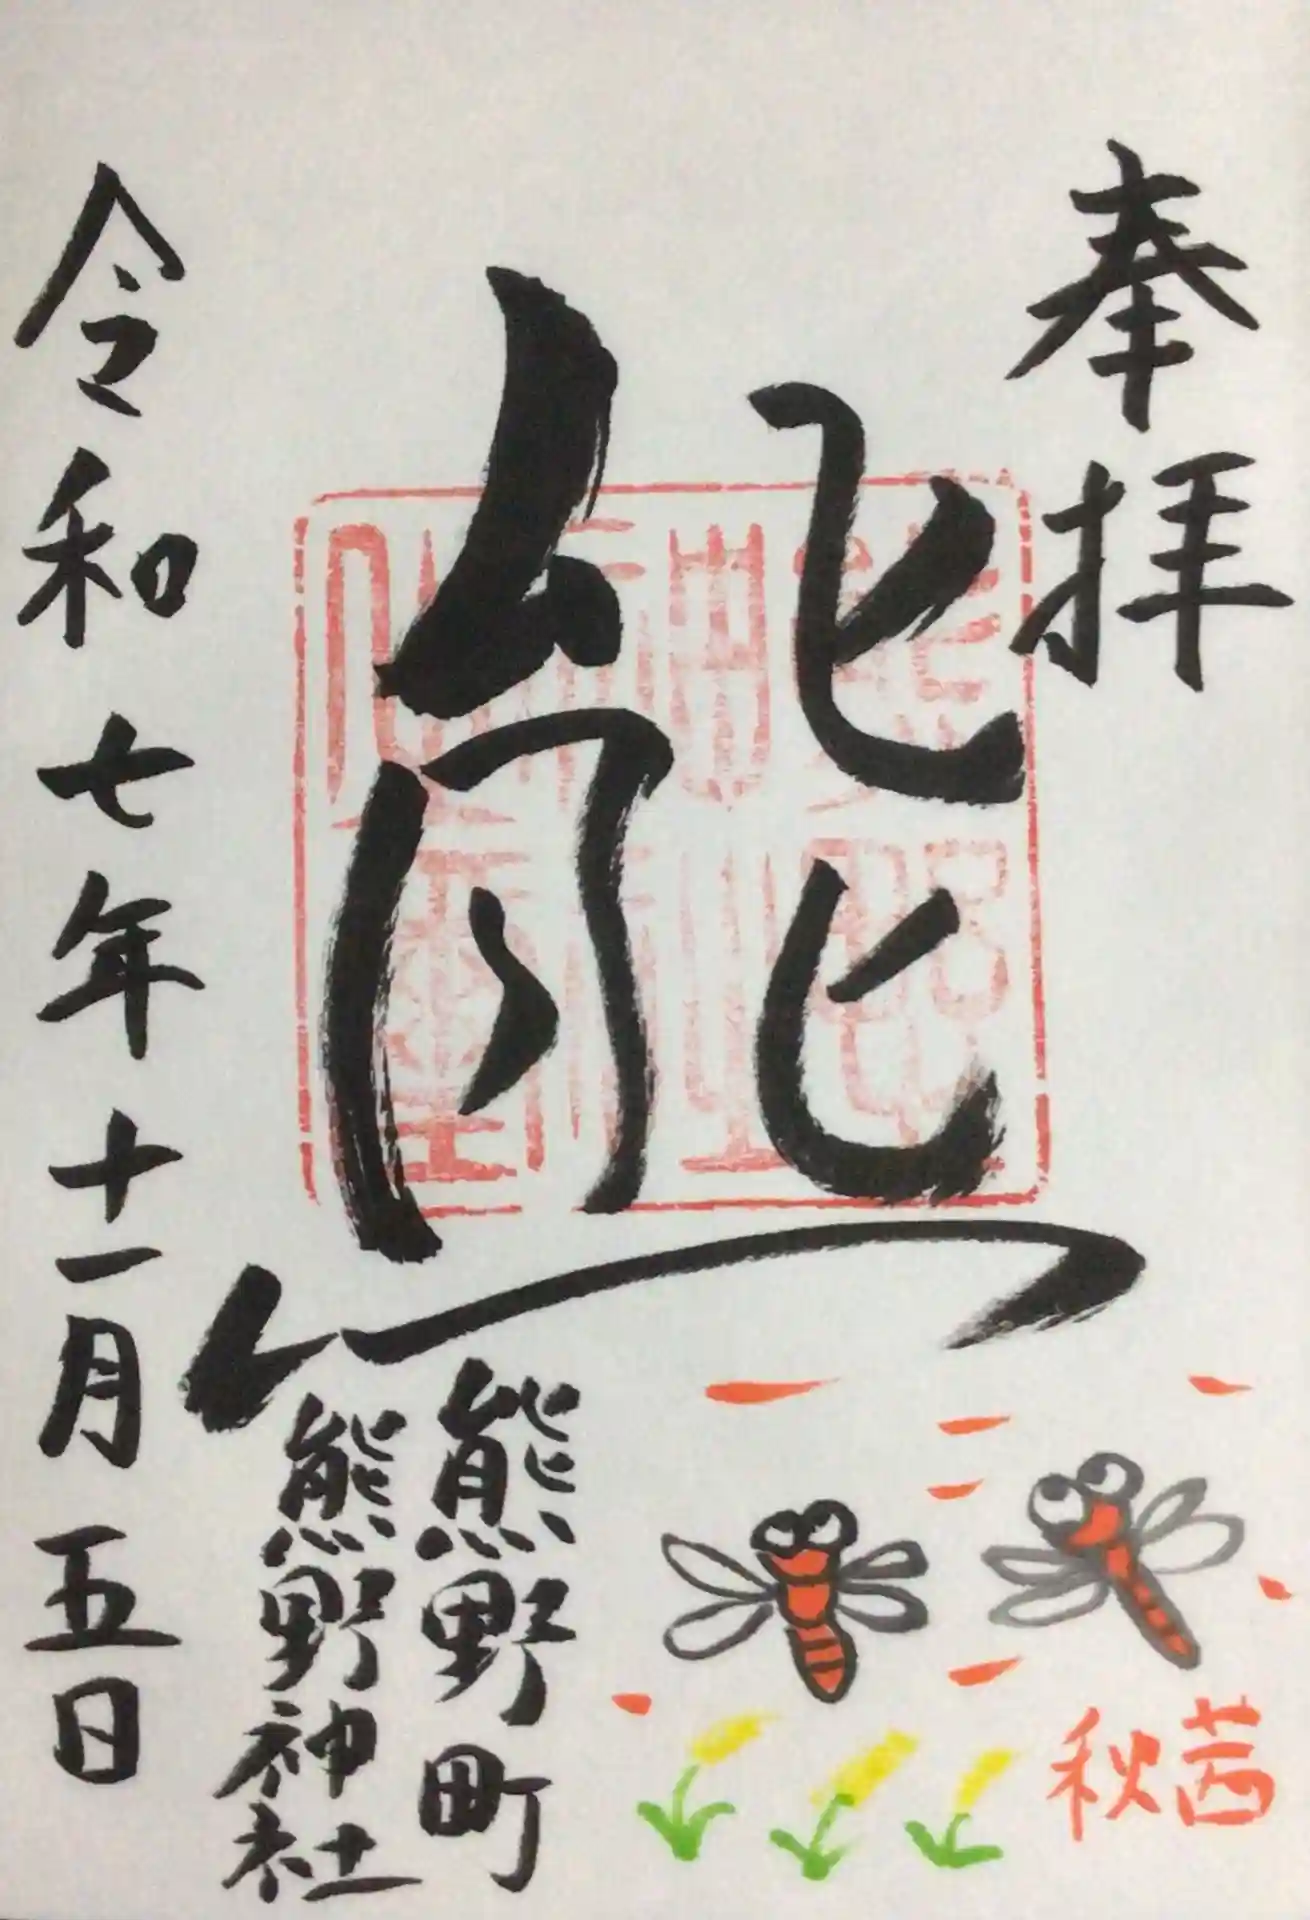 奉拝
熊
秋茜
熊野町
熊野神社
令和七年十一月五日